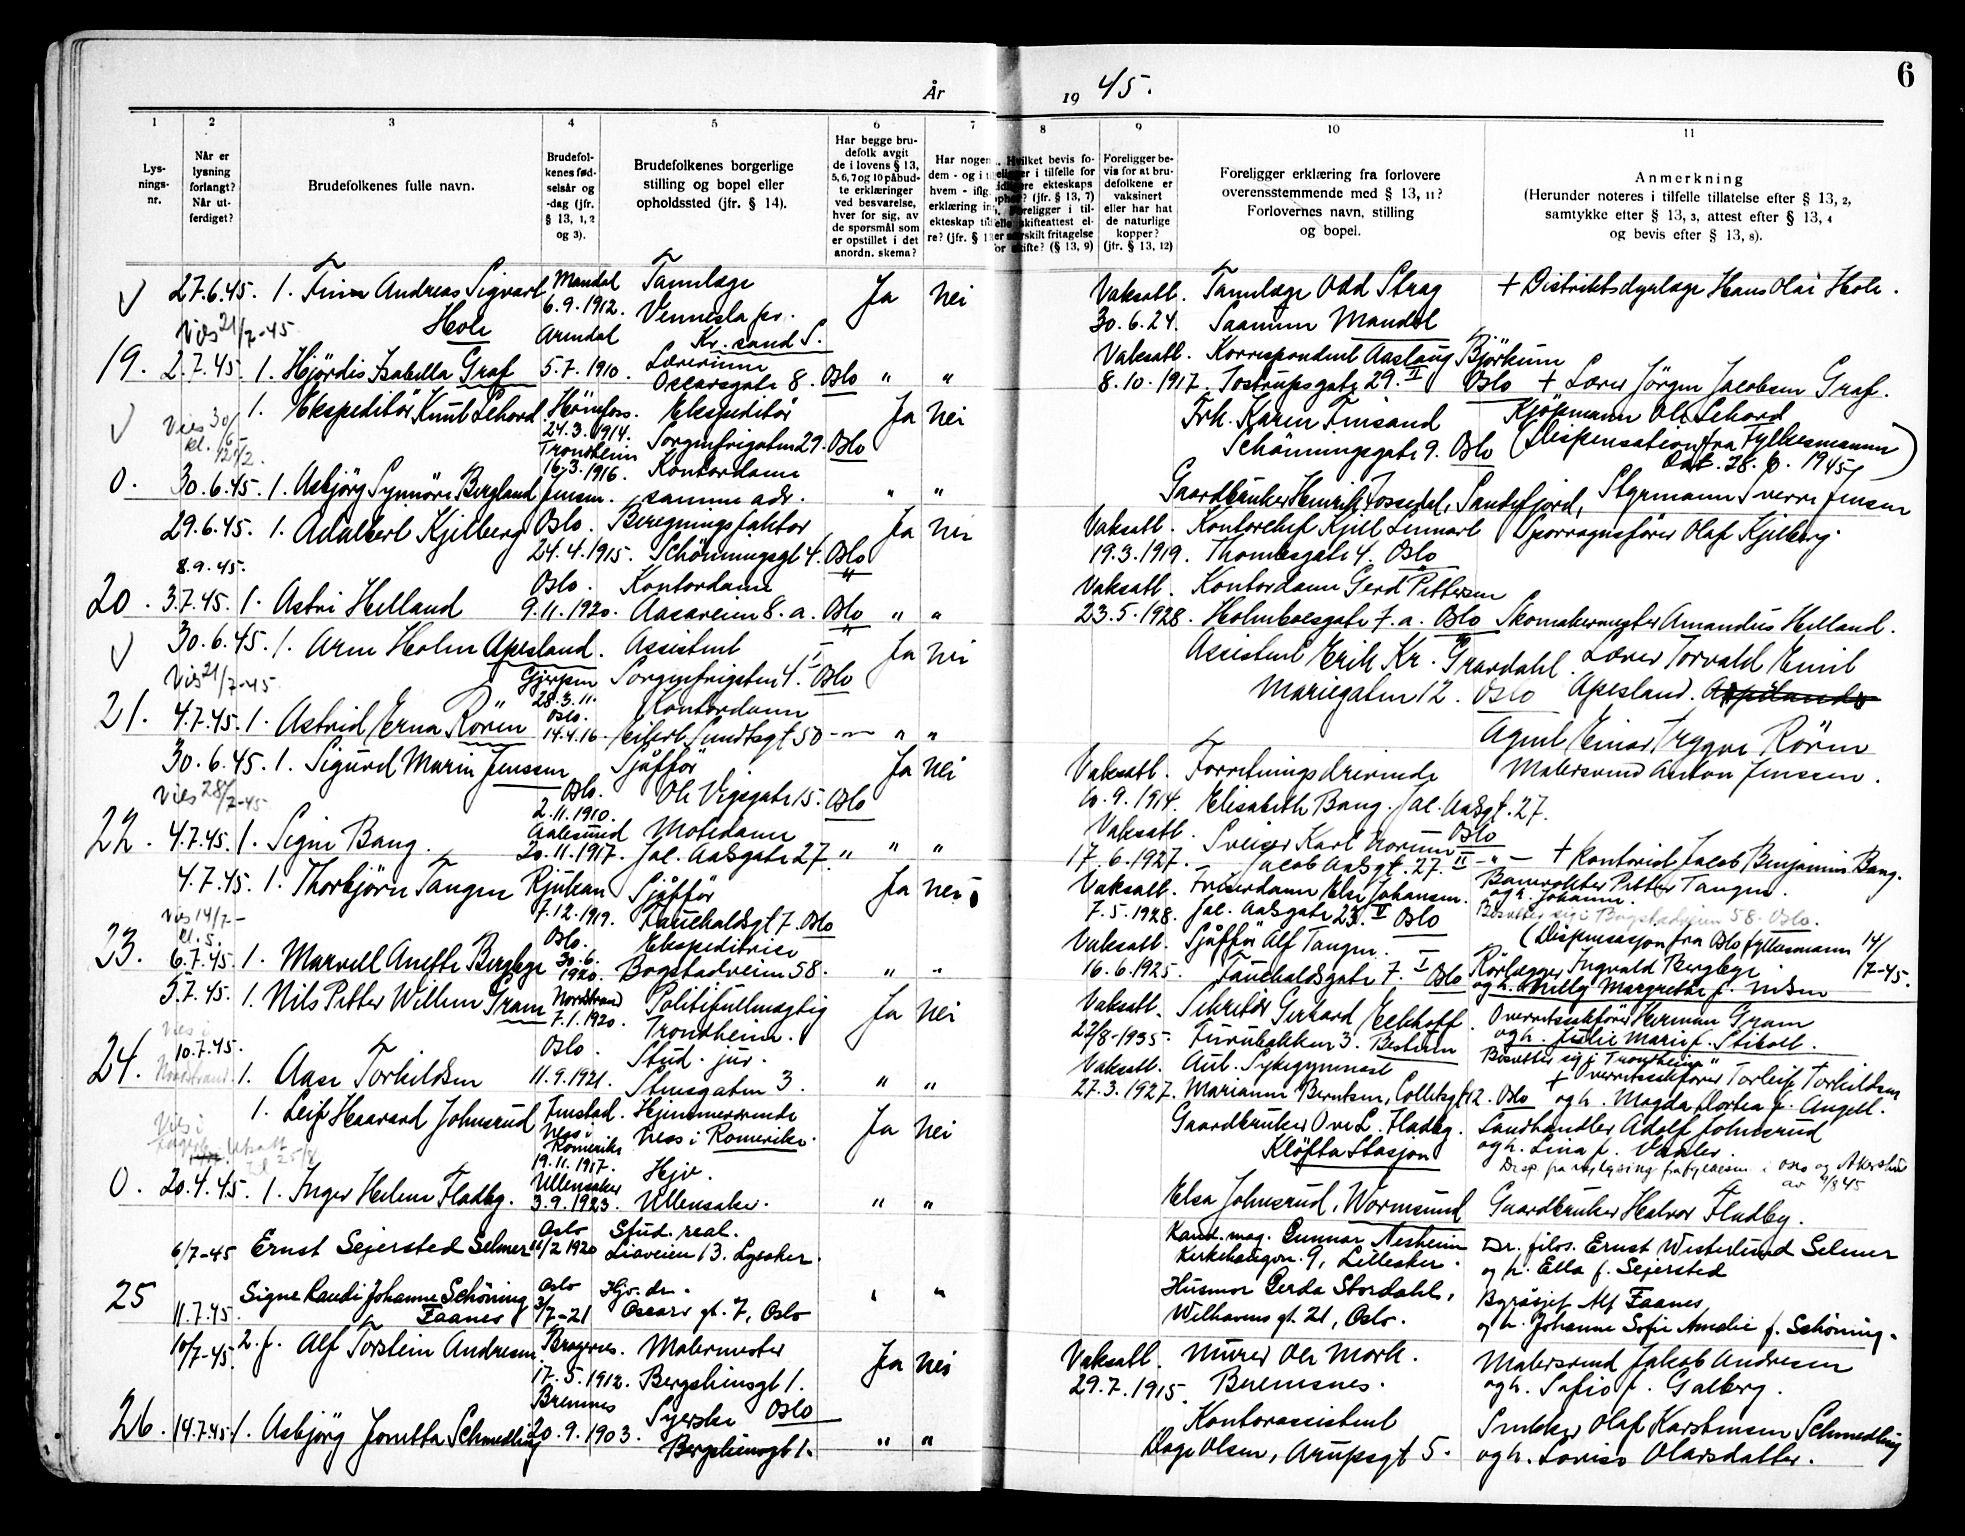 År 1945.
6
1
2
3
4
5
6
7
8
9
10
11
Lys-
nings-
nr.
Når er
lysning
forlangt?
Når ut-
ferdiget?
Brudefolkenes fulle navn.
Brudefol-
kenes fød-
selsår og
-dag (jfr.
§ 13, 1, 2
og 3).
Brudefolkenes borgerlige
stilling og bopel eller
opholdssted (jfr. § 14).
Har begge bru-
defolk avgit
de i lovens § 13,
5, 6, 7 og 10 påbud-
te erklæringer
ved besvarelse,
hver for sig, av
de spørsmål som
er opstillet i det
anordn. skema?
Har nogen
dem - og i
hvem - ifl.
erklæring in
ekteskap ti
re? (jfr. § 1
Hvilket bevis fo-
religger i tilfelle for
tidligere ekteskaps
ophør? (jfr. § 13, 7)
Foreligger i til-
felle skifteattest el-
ler særskilt fritagelse
for skifte? (§ 13, 9)
Foreligger be-
vis for at bru-
defolkene er
vaksinert
eller har hat
de naturlige
kopper?
(jfr. § 13, 12)
Foreligger erklæring fra forlovere
overensstemmende med § 13, 11?
Forlovernes navn, stilling
og bopel.
Anmerkning
(Herunder noteres i tilfelle tillatelse efter § 13, 2,
samtykke efter § 13, 3, attest efter § 13, 4
og bevis efter § 13, 8).
27.6.45. 1. Finn Andreas Sigvart Mandal Tannlæge Ja Nei Vaksatt. Tannlæge Odd Strag + Distriktsdyrlæge Hans Olai Hole.
Hole 6.9.1912. Vennesla pr. 30.6.24. Saanum Mandal
Vies 21/7-45 Arendal Kr. sand S. Vaksatt. Korrespondent Aaslaug Björkum
19. 2.7.45. 1. Hjördis Isabella Graf 5.7.1910. Lærerinne
Oscarsgate 8. Oslo " " 8.10.1917. Tostrupsgate 29. II Oslo + Lærer Jörgen Jacobsen Graf.
Vies 30/6- 1. Ekspeditör Knut Lehord Hönefoss. Ekspeditör Ja Nei Frk. Karen Finsand Kjöpmann Ole Lehord
kl. 12 1/2. 24.3.1914. Sorgenfrigaten 27. Oslo Schönningsgate 9. Oslo (Dispensation fra Fylkesmannen
Trondheim Dat. 28.6.1945)
0. 30.6.45. 1. Asbjörg Synnöve Bergland Jensen. 16.3.1916. Kontordame
samme adr. " " Gaardbruker Henrik Fossedel, Sandefjord, Styrmann Sverre Jensen
29.6.45. 1. Adalbert Kjelberg Oslo. Beregningsfaktor Ja Nei Vaksatt. Kontorchef Kjell Lennart Sporvognsförer Olaf Kjelberg.
8.9.45. 24.4.1915. Schönningsgt 4. Oslo 19.3.1919. Thomlesgate 4. Oslo
Oslo. Kontordame Vaksatt. Kontordame Gerd Pettersen
20. 3.7.45. 1. Astri Helland 9.11.1920. Aasaveien 8.a. Oslo " " 23.5.1928. Holmboesgate 7.a. Oslo Skomakermester Amandus Helland.
30.6.45. 1. Arne Holm Apesland. Assistent Ja Nei Assistent Erik Kr. Gravdahl. Lærer Torvald Emil
Vies 21/7-45. Gjerpen Sorgenfrigaten 4. I Oslo Mariegaten 12. Oslo Apesland.
28.3.11.
Oslo. Kontordame
21. 4.7.45. 1. Astrid Erna Rören 14.4.16. Eilert Sundtsgt 50 -"- " " Agent Einar Trygve Rören
30.6.45. 1. Sigurd Marin Jenssen Sjåfför Ja Nei Vaksatt. Forretningsdrivende Malersvend Anton Jenssen.
Vies 28/7-45 Oslo. Ole Vigsgate 15. Oslo 10.9.1914. Elisabeth Bang. Jac. Aalsgt. 27.
2.11.1910. Oslo
Aalesund Motedame Vaksatt. Sveiser Karl Norum
22. 4.7.45. 1. Signe Bang. 20.11.1917. Jac. Aalsgate 27. " " " 17.6.1927. Jacob Aalsgt. 27. II -"- + Kontorist Jacob Benjamin Bang.
4.7.45. 1. Thorbjörn Tangen Rjukan Sjåfför Ja Nei Vaksatt. Friserdame Else Johansen. Banevokter Petter Tangen.
Vies 14/7- 7.12.1919. Fauchaldsgt 7. Oslo 7.5.1928. Jac. Aalsgate 23. V Oslo og h. Johanne.
kl. 5. Bosetter sig i Bogstadveien 58. Oslo.
Oslo. Ekspeditrise Vaksatt. Sjåfför Alf Tangen. (Dispensasjon fra Oslo fylkesmann 14/7-45.
23. 6.7.45. 1. Marvell Anette Bergbye 30.6.1920. Bogstadveien 58. " " 16.6.1925. Fauchaldsgate 7. I Oslo Rörlægger Ingvald Bergbye
og h. Milly Margrethe f. Nilsen
5.7.45. 1. Nils Petter Willem Gram Nordstrand Politifullmægtig Ja Nei Vaksatt. Sekretær Gerhard Eckhoff. Overrettssakförer Herman Gram
Vies i 7.1.1920. Trondheim. 22/8-1935. Furubakken 3. Bestum og h. Julie Marie f. Stibolt.
10.7.45. Oslo. Stud. jur. Vaksatt. Aut. Sykegymnast Bosetter sig i Trondheim
24. Nordstrand. 1. Aase Torkildsen 11.9.1921. Stensgaten 3. " " 27.3.1927. Marianne Berntsen, Colletsgt 12. Oslo + Overrettssakförer Torleif Torkildsen
og h. Magda Dortea f. Angell.
1. Leif Haavard Johnsrud Finstad. Hjemmeværende Ja Nei Gaardbruker Ove L. Fladby. Landhandler Adolf Johnsrud
Vies i Ness i Romerike Ness i Romerike. Klöfta Stasjon og h. Lina f. Vaaler.
19.11.1917.
0. 20.4.45. 1. Inger Helene Fladby. Ullensaker Hjv.
3.9.1923. Ullensaker. " " Elsa Johnsrud, Wormsund Gaardbruker Halvor Fladby.
6/7-45 Ernst Sejersted Selmer Oslo Stud. real. Kand. mag. Gunnar Nesheim Dr. filos. Ernst Westerlund Selmer
11/2 1920 Liaveien 13. Lysaker. Kirkehaugvn. 9, Lilleaker. og h. Ella f. Sejersted
25 11.7.45. Signe Randi Johanne Schöning Oslo Hjv. dr. " " Husmor Gerda Stordahl, Byråsjef Alf Faanes
Faanes 3/7-21 Oscars gt. 7, Oslo Welhavens gt. 21, Oslo. og h. Johanne Sofie Amalie f. Schöning.
10/7-45. 2. f. Alf Torstein Andresen Bragernes. Malermester Ja Nei Vaksatt. Murer Ole Mork. Malersvend Jakob Andresen
17.5.1912. Bergsliensgt 1. 29.7.1915. Beremsnes. og h. Sofie f. Galberg.
26. 14.7.45. 1. Asbjörg Jonetta Schmedling Bremnes Syerske Oslo Kontorassistent Snekker Olaf Karstensen Schmedling
20.9.1903. Bergsliensgt 1. " " Dage Olsen, Arupsgt 5. og h. Lovise Olavsdatter.